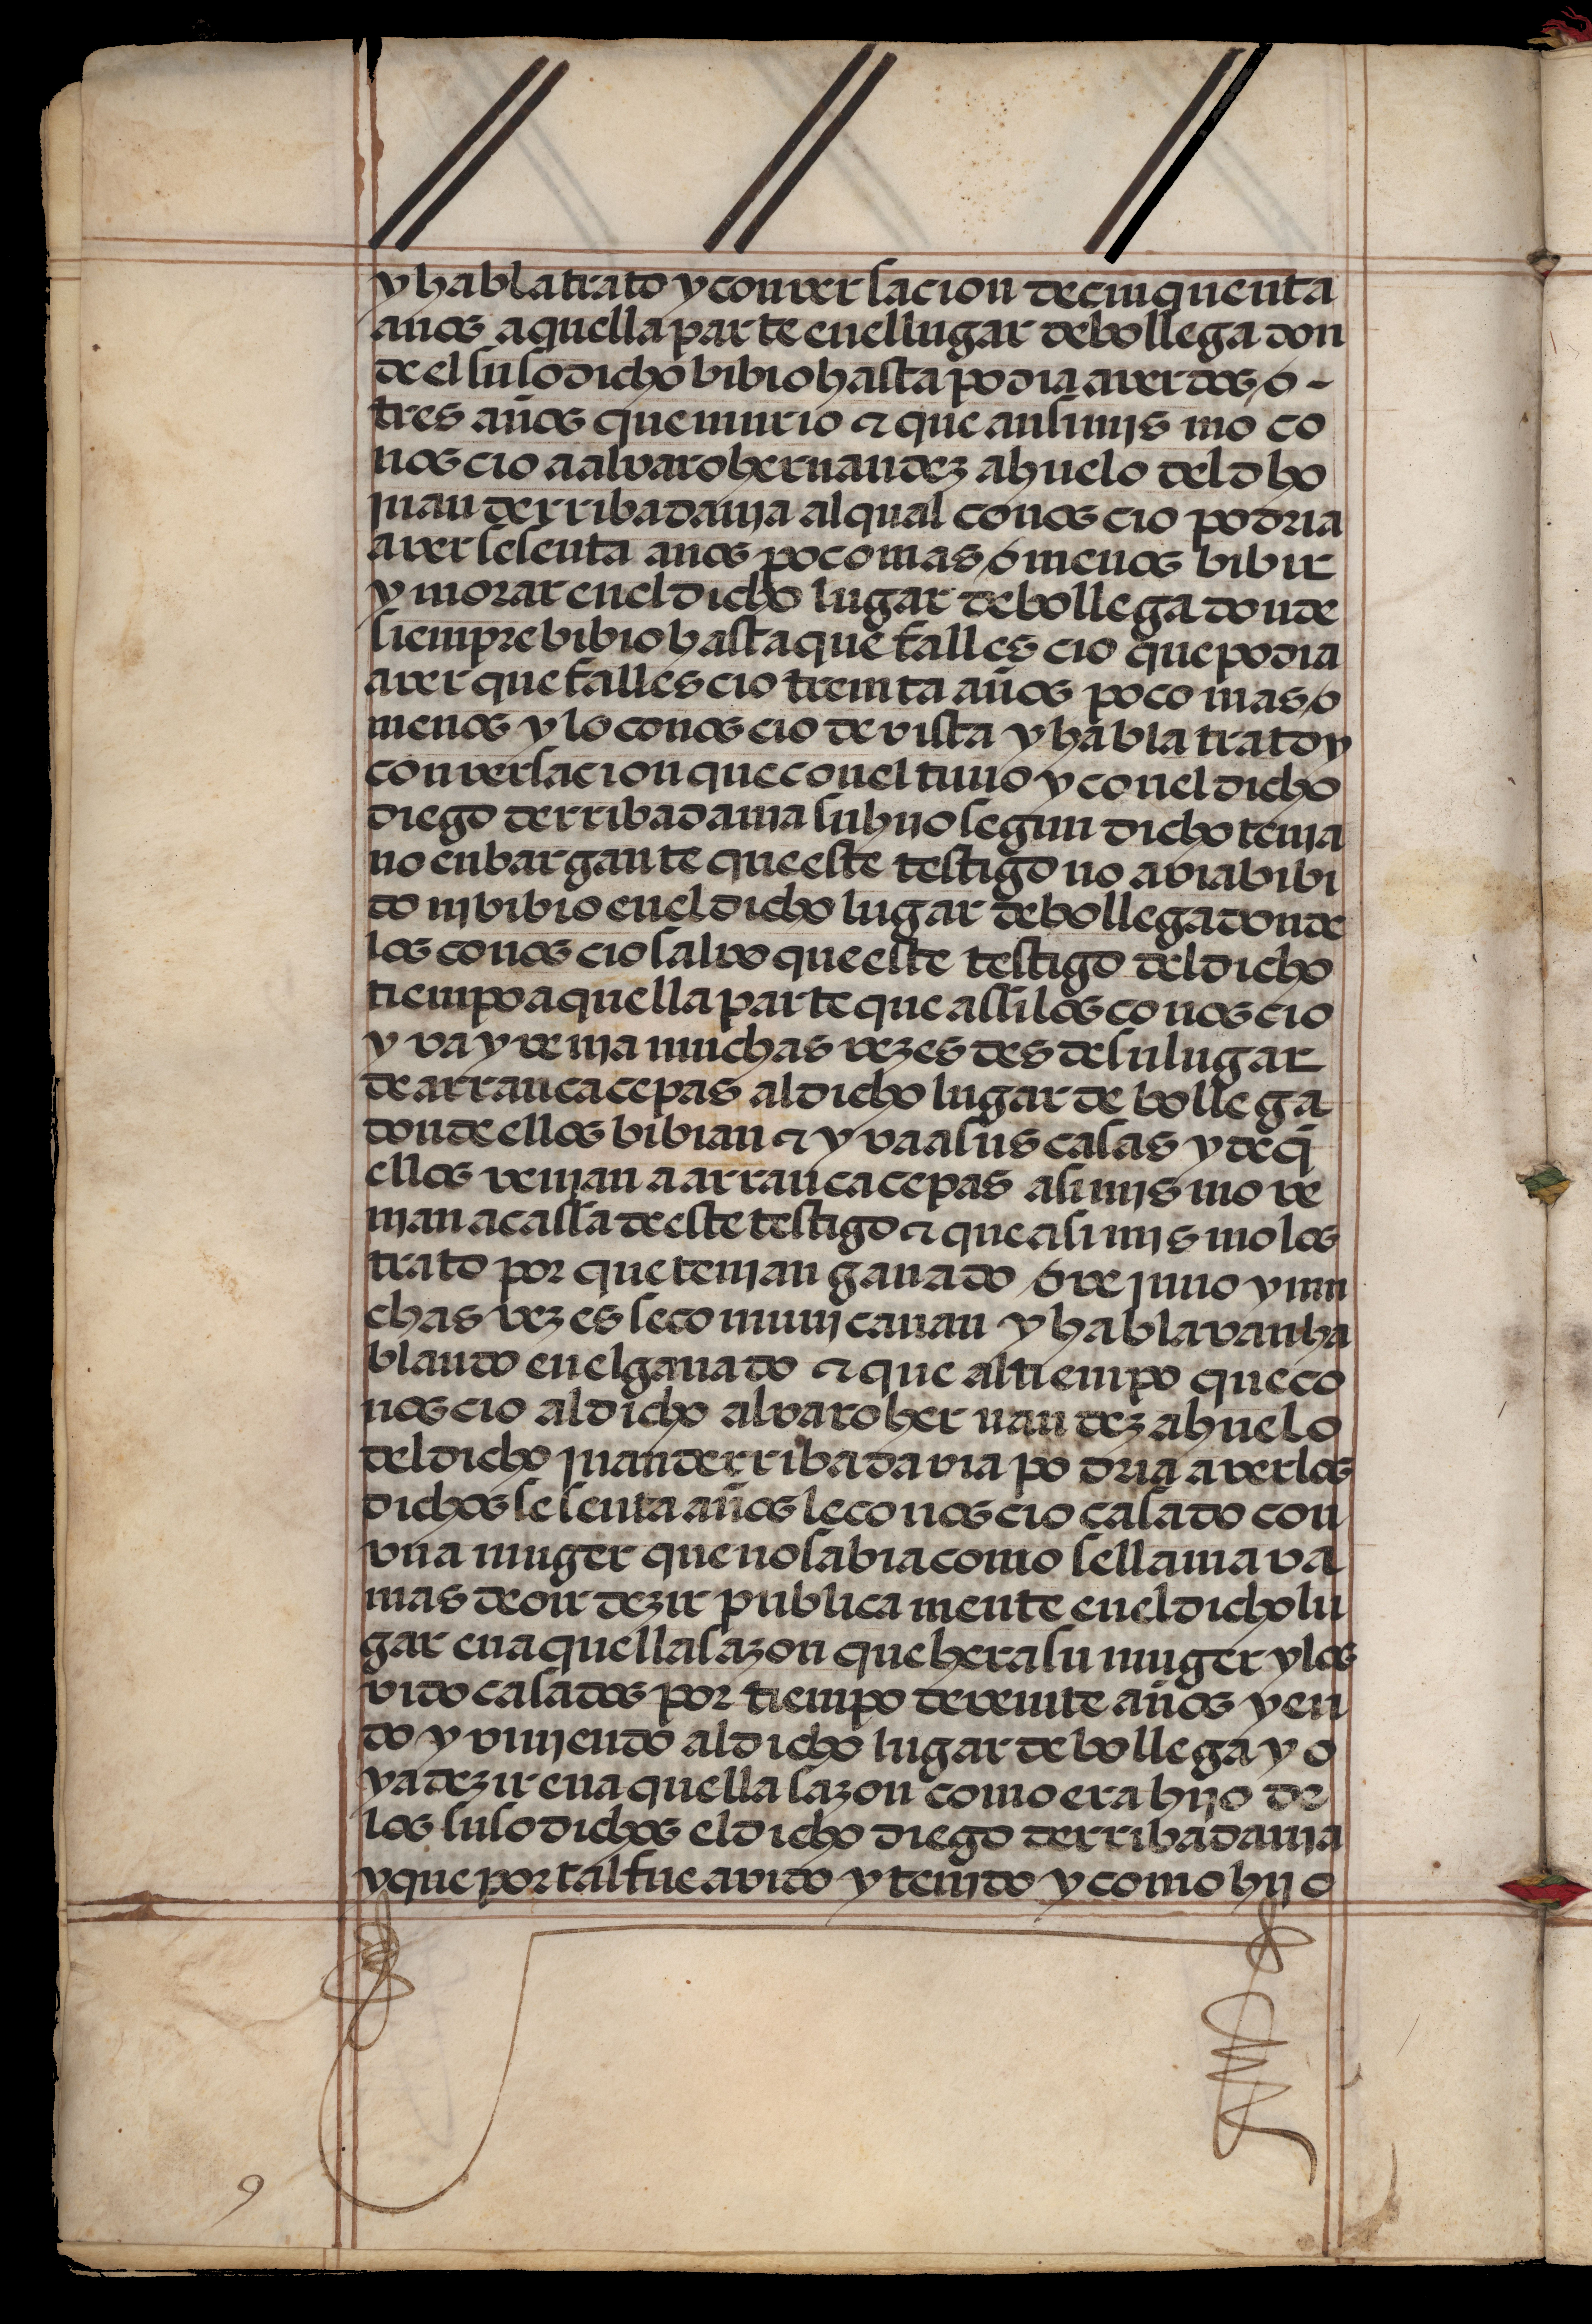 y habla trato y conversacion de cinquenta
anos aquella parte en el lugar de bollega don
de el susodicho bibio hasta podia aver dos o -
tres años que murio & que ansimjs mo co
nos cio a alvaro hernandez ahuelo del dho
juan de rribadavja al qual conos cio podria
aver sesenta anos poco mas o menos bibir
y morar en el dicho lugar de bollega donde
siempre bibio hasta que falles cio que podia
aver que falles cio treinta años poco mas o
menos y lo conos cio de vista y habla trato y
conversacion que con el tuuo y con el dicho
diego de rribadauia su hijo segun dicho tenja
no enbargante que este testigo no avia bibi
do nj bibio en el dicho lugar de bollega donde
los conos cio salvo que este testigo del dicho
tiempo aquella parte que assi los conos cio
yva y venja muchas vezes des de su lugar
de arrancacepas al dicho lugar de bollega
donde ellos bibian & yva a sus casas y de q̃
ellos venjan a arrancacepas asimjs mo ve
njan a cassa de este testigo & que asimjs mo los
trato por que tenjan ganado o vejuno y mu
chas vezes se comunjcauan y hablavan ha
blando en el ganado & que al tiempo que co
nos cio al dicho alvaro hernandez ahuelo
del dicho juan de rribadavia podria aver los
dichos sesenta años le conos cio casado con
vna muger que no sabia como se llamava
mas de oir dezir publicamente en el dicho lu
gar en aquella sazon que hera su muger y los
vido casados por tiempo de veinte años yen
do y vinjendo al dicho lugar de bollega y o
ya dezir en aquella sazon como era hijo de
los susodichos el dicho diego de rribadauja
y que por tal fue avido y tenjdo y como hijo
9